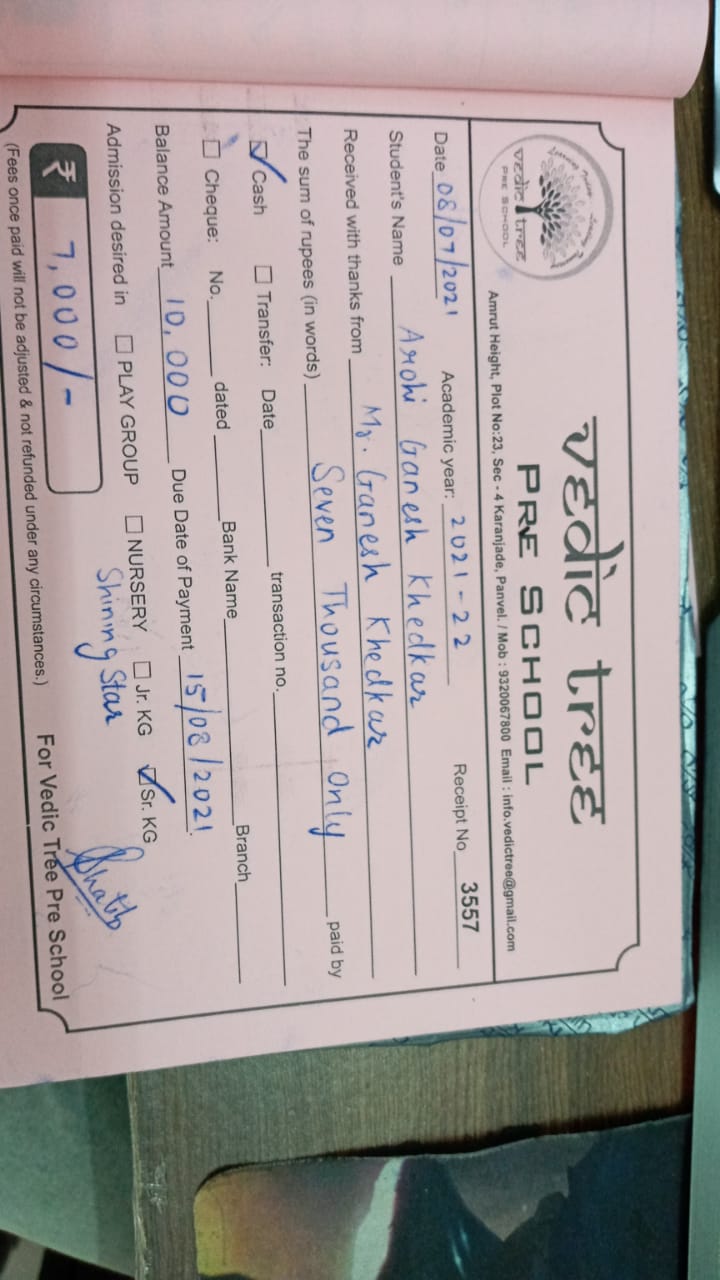 vedic tree
PRE SCHOOL
vedic tree
PRE SCHOOL
Amrut Height, Plot No:23, Sec - 4 Karanjade, Panvel. / Mob : 9320067800 Email : info.vedictree@gmail.com
Date 08/07/2021 Academic year: 2021-22 Receipt No 3557
Student's Name Arohi Ganesh Khedkar
Received with thanks from Mr. Ganesh Khedkar
The sum of rupees (in words) Seven Thousand Only paid by
☑ Cash ☐ Transfer: Date transaction no.
☐ Cheque: No. dated Bank Name Branch
Balance Amount 10,000 Due Date of Payment 15/08/2021.
Admission desired in ☐ PLAY GROUP ☐ NURSERY ☐ Jr. KG ☑ Sr. KG
Shining Star
₹ 7,000/-
For Vedic Tree Pre School
(Fees once paid will not be adjusted & not refunded under any circumstances.)